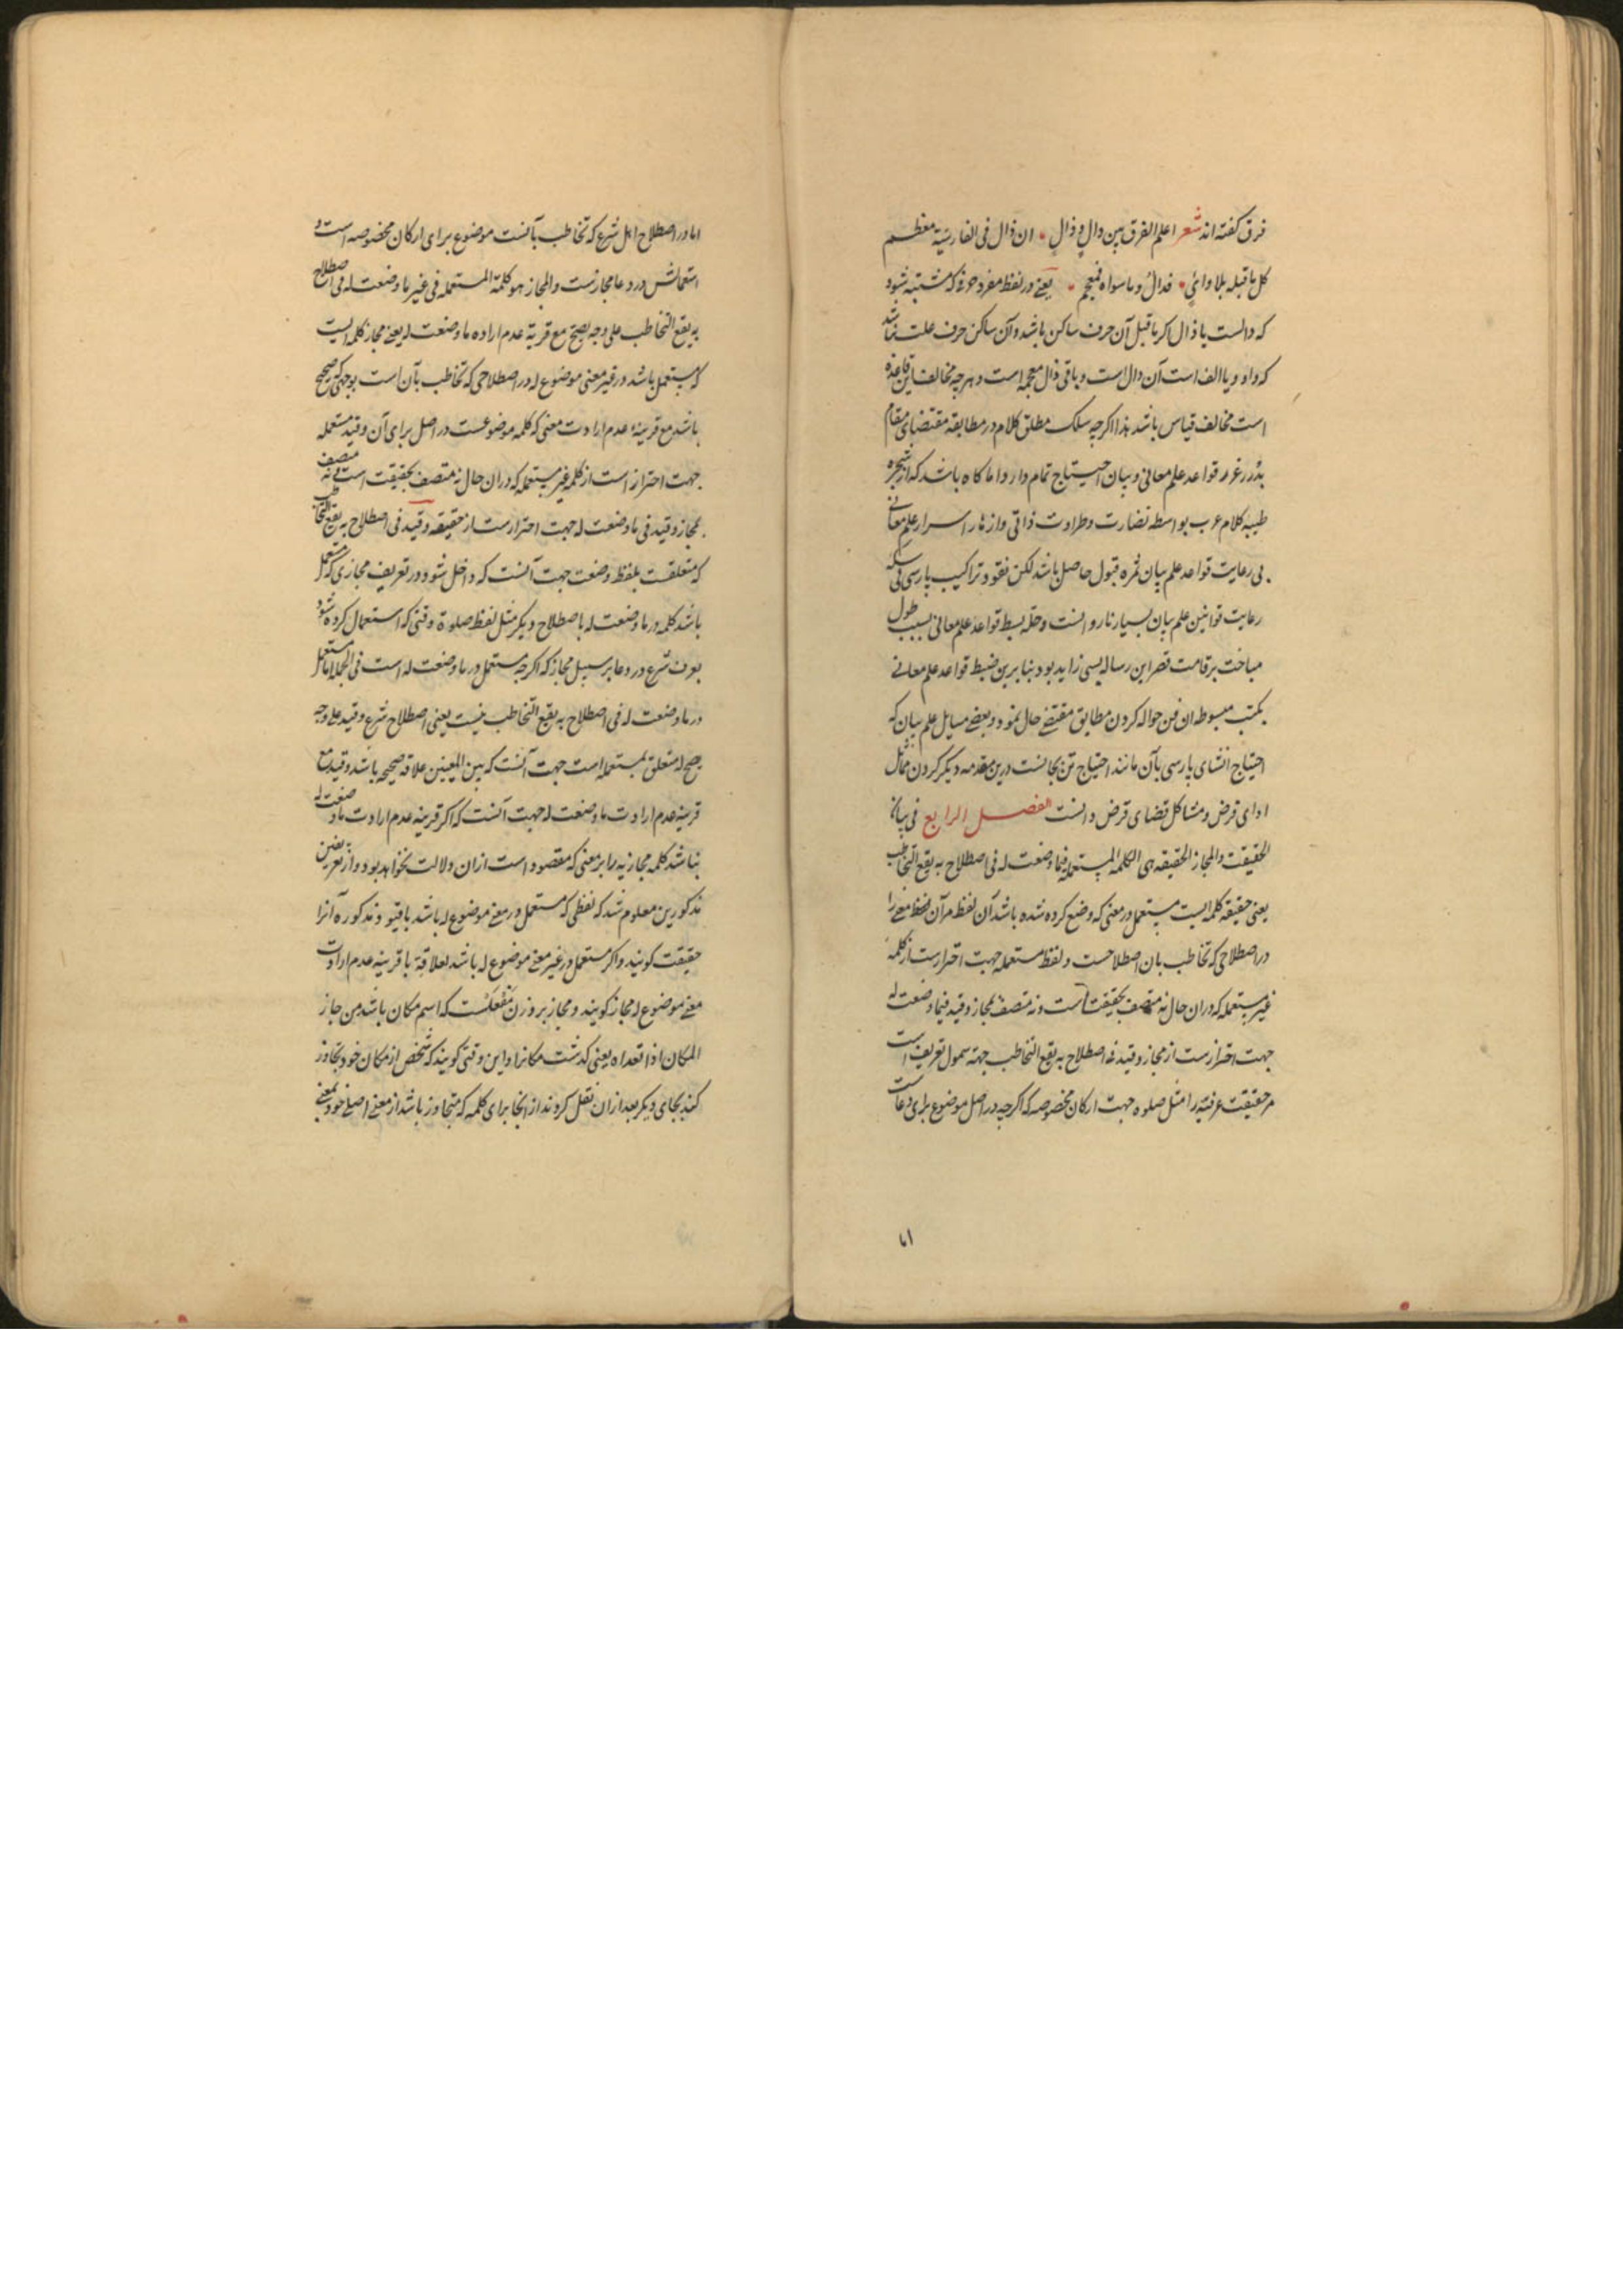 فرق گفته اند شعر اعلم الفرق بین دال و ذال ان ذال فی الفارسیة معظم
کل ما قبله بلا وائی فدال وما سواه فمعجم یعنی در لفظ مفرد حرفی که مشتبه شود
که دالست یا ذال اکر ما قبل آن حرف ساکن باشد و آن ساکن حرف علت نباشد
که واو و یا الف است آن دال است و باقی ذال معجمه است و هرچه مخالف این قاعده
است مخالف قیاس باشد هذا اکرچه سلک مطلق کلام در مطابقه مقتضای مقام
بدرر غرر قواعد علم معانی و بیان احتیاج تمام دارد اما کاه باشد که از شجره
طیبه کلام عرب بواسطه نضارت و طراوت ذاتی و ازهار اسرار علم معانی
بی رعایت قواعد علم بیان ثمره قبول حاصل باشد لکن نقود تراکیب پارسی بی سکه
رعایت قوانین علم بیان بسیار نارواست و حله بسط قواعد علم معانی بسبب طول
مباحث بر قامت قصر این رساله بسی زاید بود بنابرین ضبط قواعد علم معانی
بکتب مبسوطه ان فن حواله کردن مطابق مقتضی حال نمود و بعضی مسایل علم بیان که
احتیاج انشای پارسی بآن مانند احتیاج تن بجانست درین مقدمه ذکر کردن مماثل
ادای فرض و مشاکل قضای قرض دانست الفصل الرابع فی بیان
الحقیقت والمجاز الحقیقه هی الکلمه المستعمله فیما وضعت له فی اصطلاح به یقع التخاطب
یعنی حقیقه کلمه ایست مستعمل در معنی که وضع کرده شده باشد آن لفظ مرآن معنی را
در اصطلاحی که تخاطب بان اصطلاحست و لفظ مستعمله جهت احترازست از کلمهٔ
غیر مستعمله که دران حال نه متصف بحقیقت است و نه متصف بمجاز و قید فیما وضعت له
جهت احترازست از مجاز و قید فی اصطلاح به یقع التخاطب جهة شمول تعریف است
مر حقیقت عرفیه را مثل صلوه جهت ارکان مخصوصه که اکرچه در اصل موضوع برای دعاست
۷۱
اما در اصطلاح اهل شرع که تخاطب بآنست موضوع برای ارکان مخصوصه است و
استعمالش در دعا مجازست والمجاز هو کلمة المستعمله فی غیر ما وضعت له فی اصطلاح
به یقع التخاطب علی وجه یصح مع قرینة عدم اراده ما وضعت له یعنی مجاز کلمه ایست
که مستعمل باشد در غیر معنی موضوع له در اصطلاحی که تخاطب بآن است بوجهی که صحیح
باشد مع قرینهٔ عدم ارادت معنی که کلمه موضوعست در اصل برای آن و قید مستعمله
جهت احتراز است از کلمه غیر مستعمله که دران حال نه متصف بحقیقت است نه متصف
بمجاز و قید فی ما وضعت له جهت احترازست از حقیقه و قید فی اصطلاح به یقع التخاطب
که متعلقست بلفظ وضعت جهت آنست که داخل شود در تعریف مجازی که مستعمل
باشد کلمه در ما وضعت له باصطلاح دیکر مثل لفظ صلوة وقتی که استعمال کرده شود
بعرف شرع در دعا بر سبیل مجاز که اکرچه مستعمل در ما وضعت له است فی الجمله اما مستعمل
در ما وضعت له فی اصطلاح به یقع التخاطب نیست یعنی اصطلاح شرع و قید علی وجه
یصح که متعلق بمستعمله است جهت آنست که بین المعنیین علاقه صحیحه باشد و قید مع
قرینه عدم ارادت ما وضعت له جهت آنست که اکر قرینه عدم ارادت ما وضعت له
نباشد کلمه مجازیه را بر معنی که مقصود است ازان دلالت نخواهد بود و از تعریفین
مذکورین معلوم شد که لفظی که مستعمل در معنی موضوع له باشد با قیود مذکوره آنرا
حقیقت کویند و اکر مستعمل در غیر معنی موضوع له باشد لعلاقة با قرینه عدم ارادت
معنی موضوع له مجاز کویند و مجاز بر وزن مفعلست که اسم مکان باشد من جاز
المکان اذا تعداه یعنی کذشت مکانرا و این وقتی کویند که شخص از مکان خود تجاوز
کند بجای دیکر بعد ازان نقل کردند از انجا برای کلمه که متجاوز باشد از معنی اصلی خود بمعنی